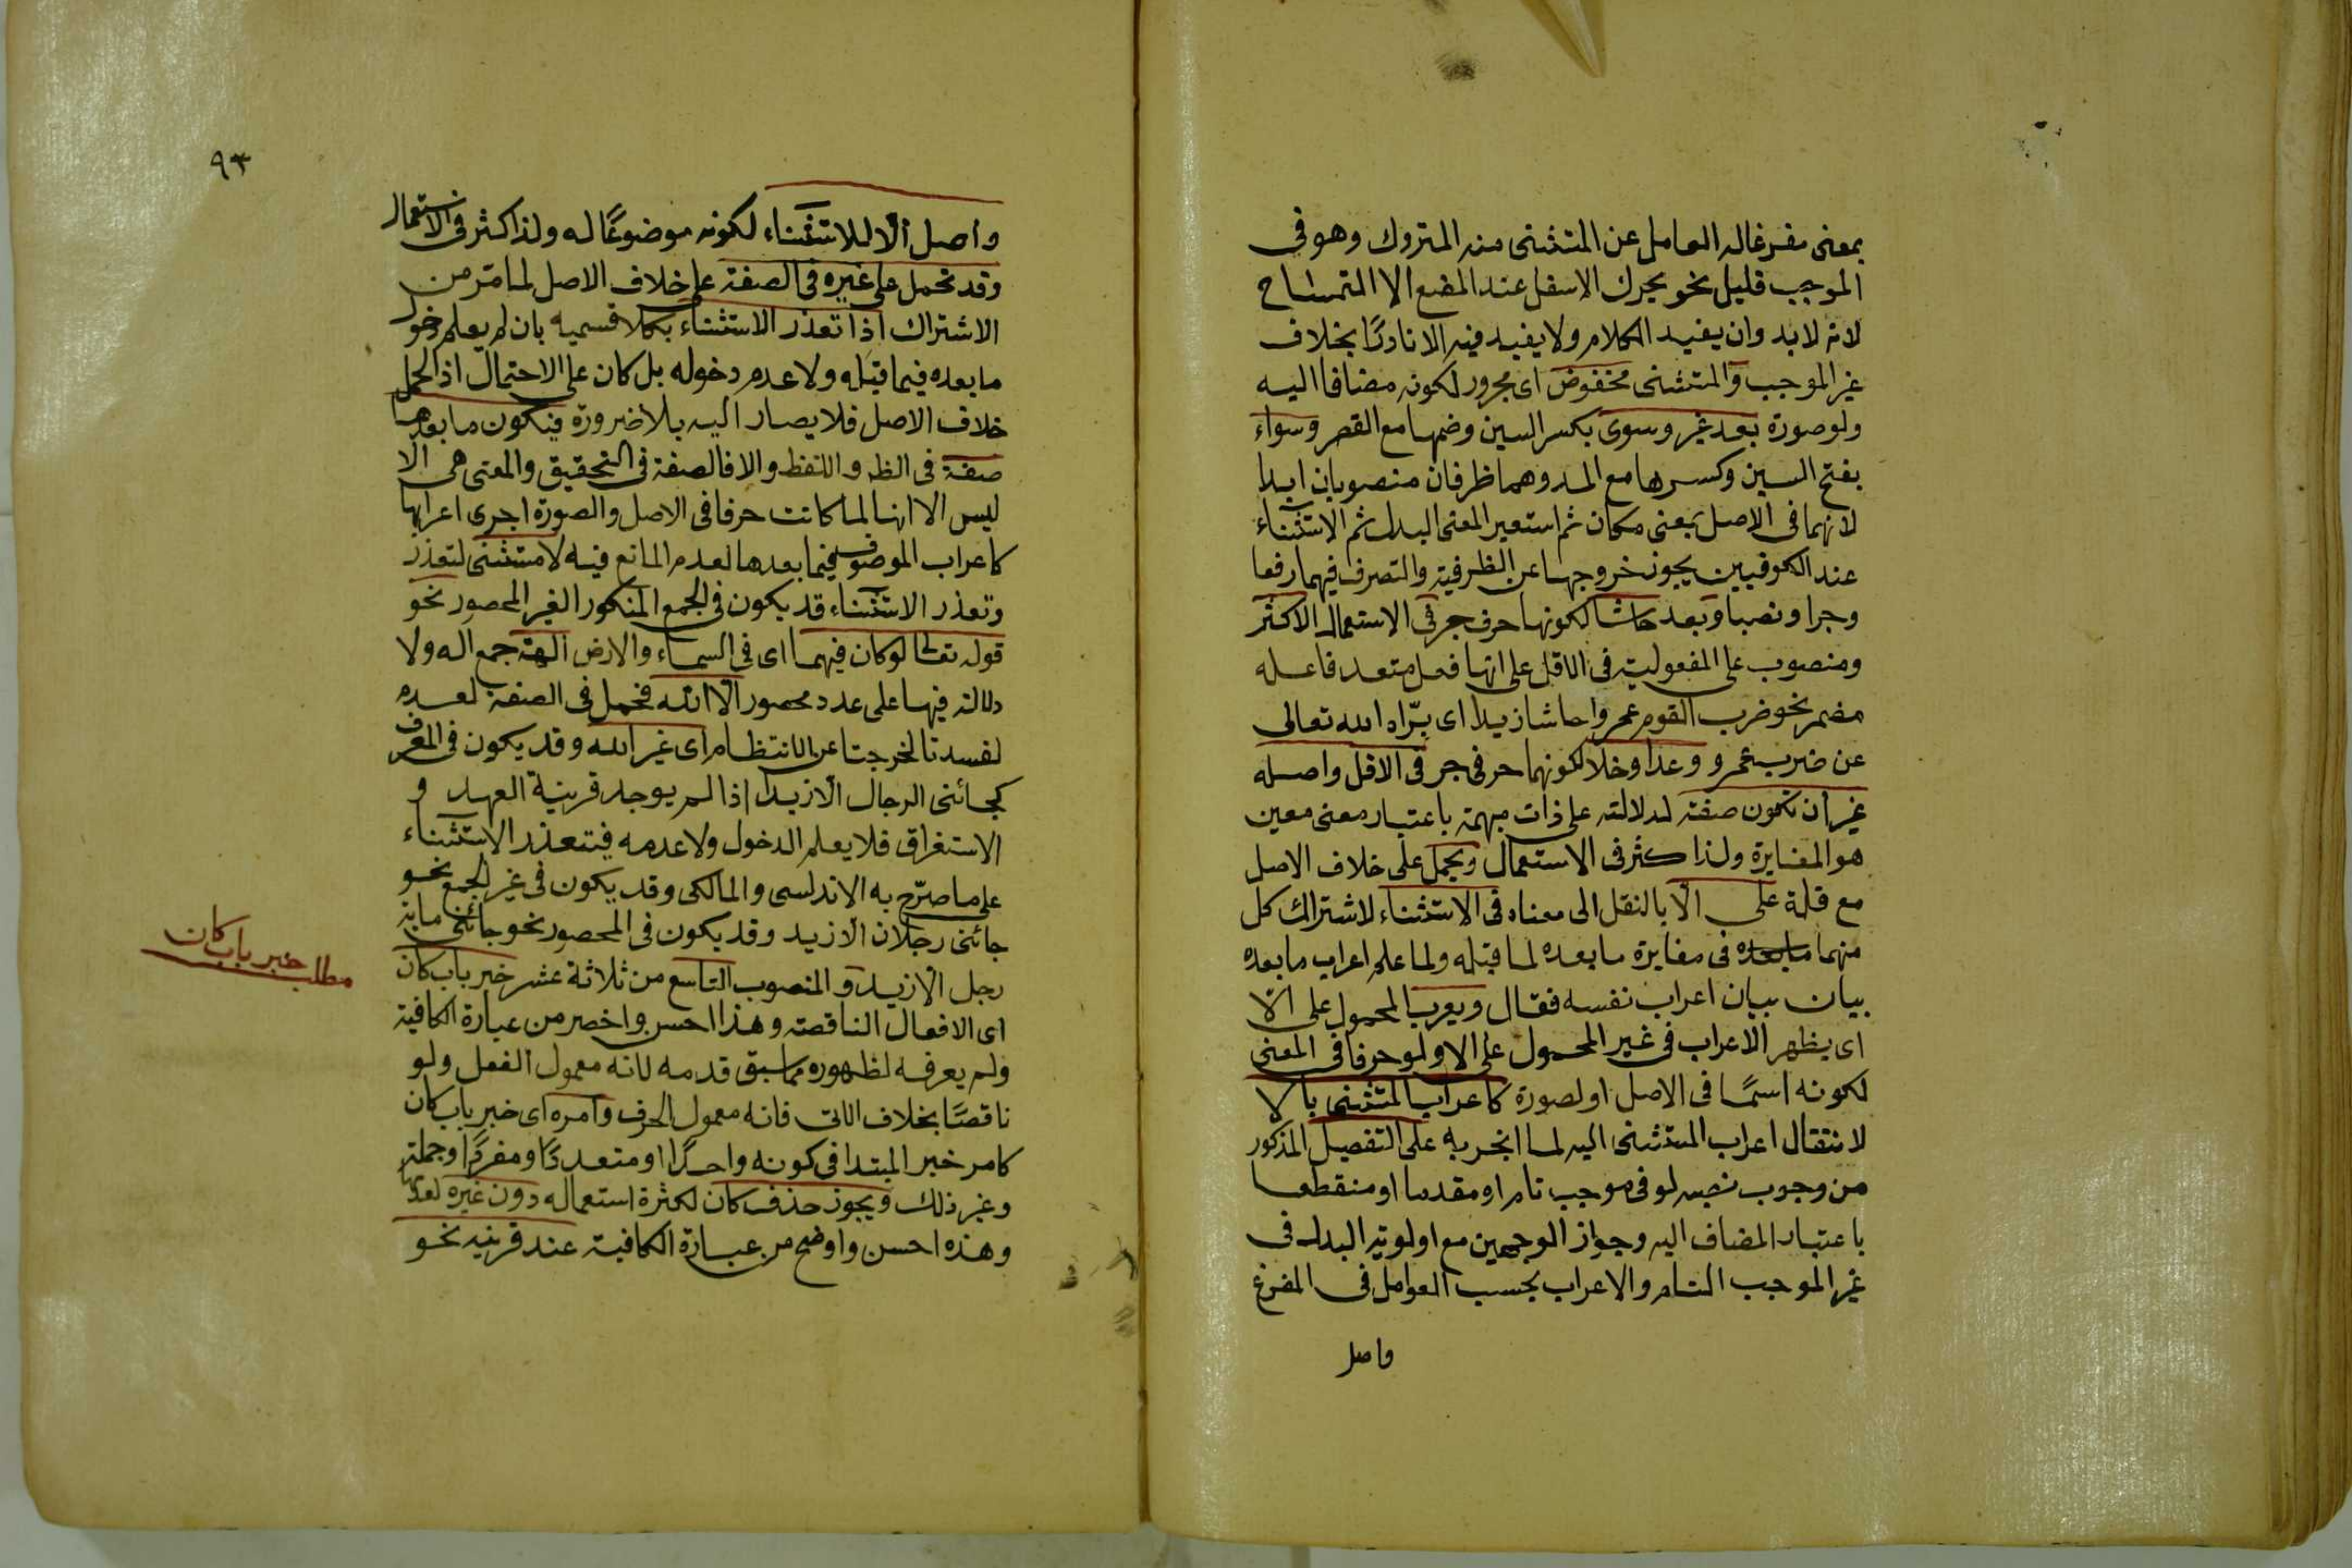 بمعنى مفرغا له العامل عن المستثنى منه المتروك وهو فى
الموجب قليل نحو يحرك الاسفل عند المضغ الا التمساح
لانه لا بد وان يفيد الكلام ولا يفيد فيه الا نادرًا بخلاف
غير الموجب والمستثنى مخفوض اى مجرور لكونه مضافا اليه
ولو صورة بعد غير وسوى بكسر السين وضمها مع القصر وسواء
بفتح السين وكسرها مع المد وهما ظرفان منصوبان ابدا
لانهما فى الاصل بمعنى مكان ثم استعير لمعنى البدل ثم الاستثناء
عند الكوفيين يجوز خروجها عن الظرفية والتصرف فيهما رفعا
وجرا ونصبا وبعد حاشا لكونها حرف جر فى الاستعمال الاكثر
ومنصوب على المفعولية فى الاقل على انها فعل متعد فاعله
مضمر نحو ضرب القوم عمروا حاشا زيدا اى برّاه الله تعالى
عن ضرب عمرو وعدا وخلا لكونهما حرفى جر فى الاقل واصله
غير ان تكون صفة لدلالته على ذات مبهمة باعتبار معنى معين
هو المغايرة ولذا كثر فى الاستعمال ويحمل على خلاف الاصل
مع قلة على الّا بالنقل الى معناه فى الاستثناء لاشتراك كل
منهما مابعده فى مغايرة ما بعده لما قبله ولما علم اعراب ما بعده
بيان بيان اعراب نفسه فقال ويعرب المحمول على الّا
اى يظهر الاعراب فى غير المحمول على الا ولو حرفا فى المعنى
لكونه اسمًا فى الاصل او لصورة كاعراب المستثنى بالا
لانتقال اعراب المستثنى اليه لما انجر به على التفصيل المذكور
من وجوب نصبه لو فى موجب تام او مقدما او منقطعا
باعتبار المضاف اليه وجواز الوجهين مع اولوية البدل فى
غير الموجب التام والاعراب بحسب العوامل فى المفرغ
واصل
٩٣
واصل الّا للاستثناء لكونه موضوعًا له ولذا كثر فى الاستعمال
وقد تحمل على غيره فى الصفة على خلاف الاصل لما مر من
الاشتراك اذا تعذر الاستثناء بكلا قسميه بان لم يعلم دخول
ما بعده فيما قبله ولا عدم دخوله بل كان على الاحتمال اذ الحمل
خلاف الاصل فلا يصار اليه بلا ضرورة فيكون ما بعدها
صفة فى الظ واللفظ والا فالصفة فى التحقيق والمعنى هى الا
ليس الا انها لما كانت حرفا فى الاصل والصورة اجرى اعرابها
كاعراب الموصوف فيما بعدها لعدم المانع فيه لا مستثنى لتعذر
وتعذر الاستثناء قد يكون فى الجمع المنكور الغير المحصور نحو
قوله تعالى لو كان فيهما اى فى السماء والارض الهة جمع اله ولا
دلالة فيها على عدد محصور الا الله فحمل فى الصفة لعدم
لفسدتا لخرجتا عن الانتظام اى غير الله وقد يكون فى المعرف
كجائنى الرجال الا زيدا اذا لم يوجد قرينة العهد و
الاستغراق فلا يعلم الدخول ولا عدمه فيتعذر الاستثناء
على ما صرّح به الاندلسى والمالكى وقد يكون فى غير الجمع نحو
جائنى رجلان الا زيد وقد يكون فى المحصور نحو جائنى ماية
رجل الا زيد والمنصوب التاسع من ثلاثة عشر خبر باب كان
اى الافعال الناقصة وهذا احسن واخصر من عبارة الكافية
ولم يعرفه لظهوره مما سبق قدمه لانه معمول الفعل ولو
ناقصًا بخلاف الاتى فانه معمول الحرف وامره اى خبر باب كان
كامر خبر المبتدا فى كونه واحدًا او متعددًا ومفردًا وجملة
وغير ذلك ويجوز حذف كان لكثرة استعماله دون غيره لعدمها
وهذه احسن واوضح من عبارة الكافية عند قرينه نحو
مطلب خبر باب كان